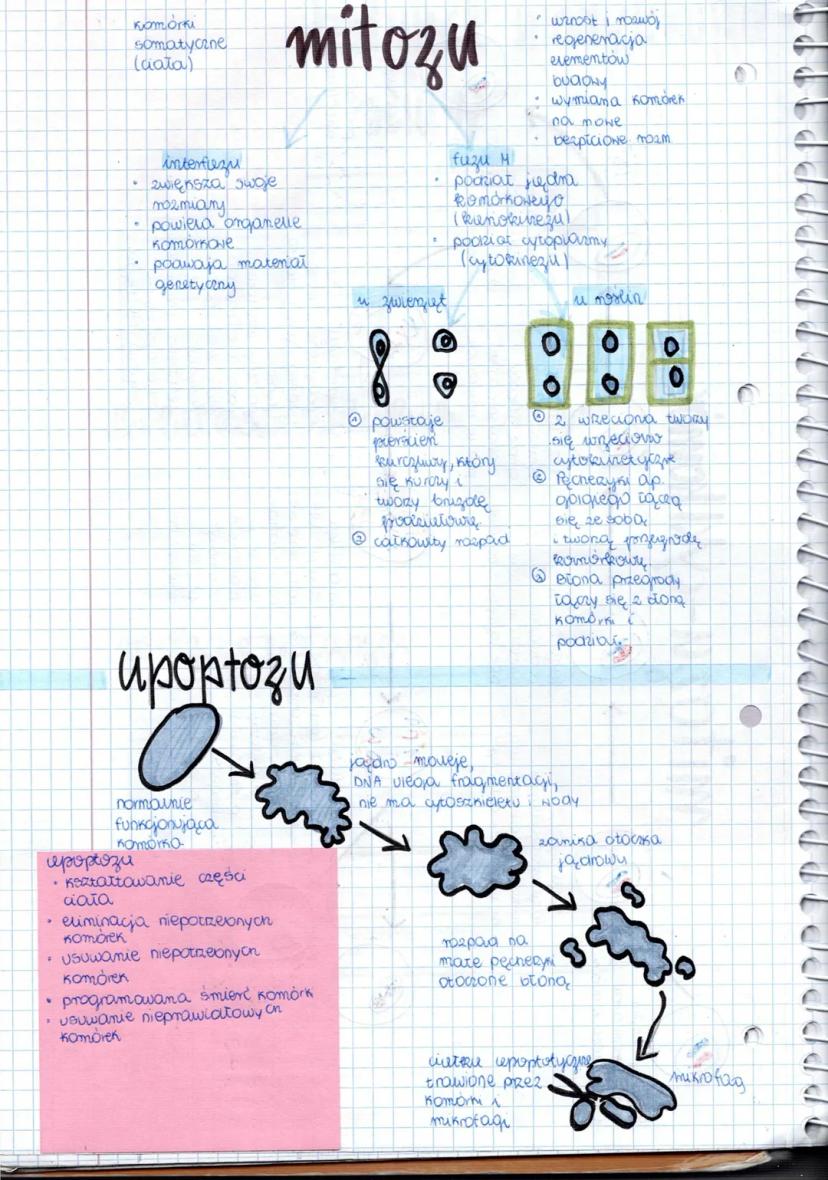 komórki
somatyczne
(ciała)
mitoza
• wzrost i rozwój
• regeneracja
elementów
budowy
• wymiana komórek
na nowe
• bezpłciowe rozm.
interfaza
• zwiększa swoje
rozmiary
• powiela organelle
komórkowe
• podwaja materiał
genetyczny
faza M
• podział jądra
komórkowego
(kariokineza)
• podział cytoplazmy
(cytokineza)
u zwierząt
u roślin
① powstaje
pierścień
kurczliwy, który
się kurczy i
tworzy bruzdę
podziałową
② całkowity rozpad
① z wrzeciona tworzy
się wrzeciono
cytokinetyczne
② Pęcherzyki ap.
golgiego łączą
się ze sobą
i tworzą przegrodę
komórkową
③ Błona przegrody
łączy się z błoną
komórki i
podział.
apoptoza
normalnie
funkcjonująca
komórka
jądro maleje,
DNA ulega fragmentacji,
nie ma cytoszkieletu i wody
zanika otoczka
jądrowa
rozpad na
małe pęcherzyki
otoczone błoną
ciałka apoptotyczne
trawione przez
komórki i
mikrofagi
mikrofag
apoptoza
• kształtowanie części
ciała
• eliminacja niepotrzebnych
komórek
• usuwanie niepotrzebnych
komórek
• programowana śmierć komórk
• usuwanie nieprawidłowych
komórek